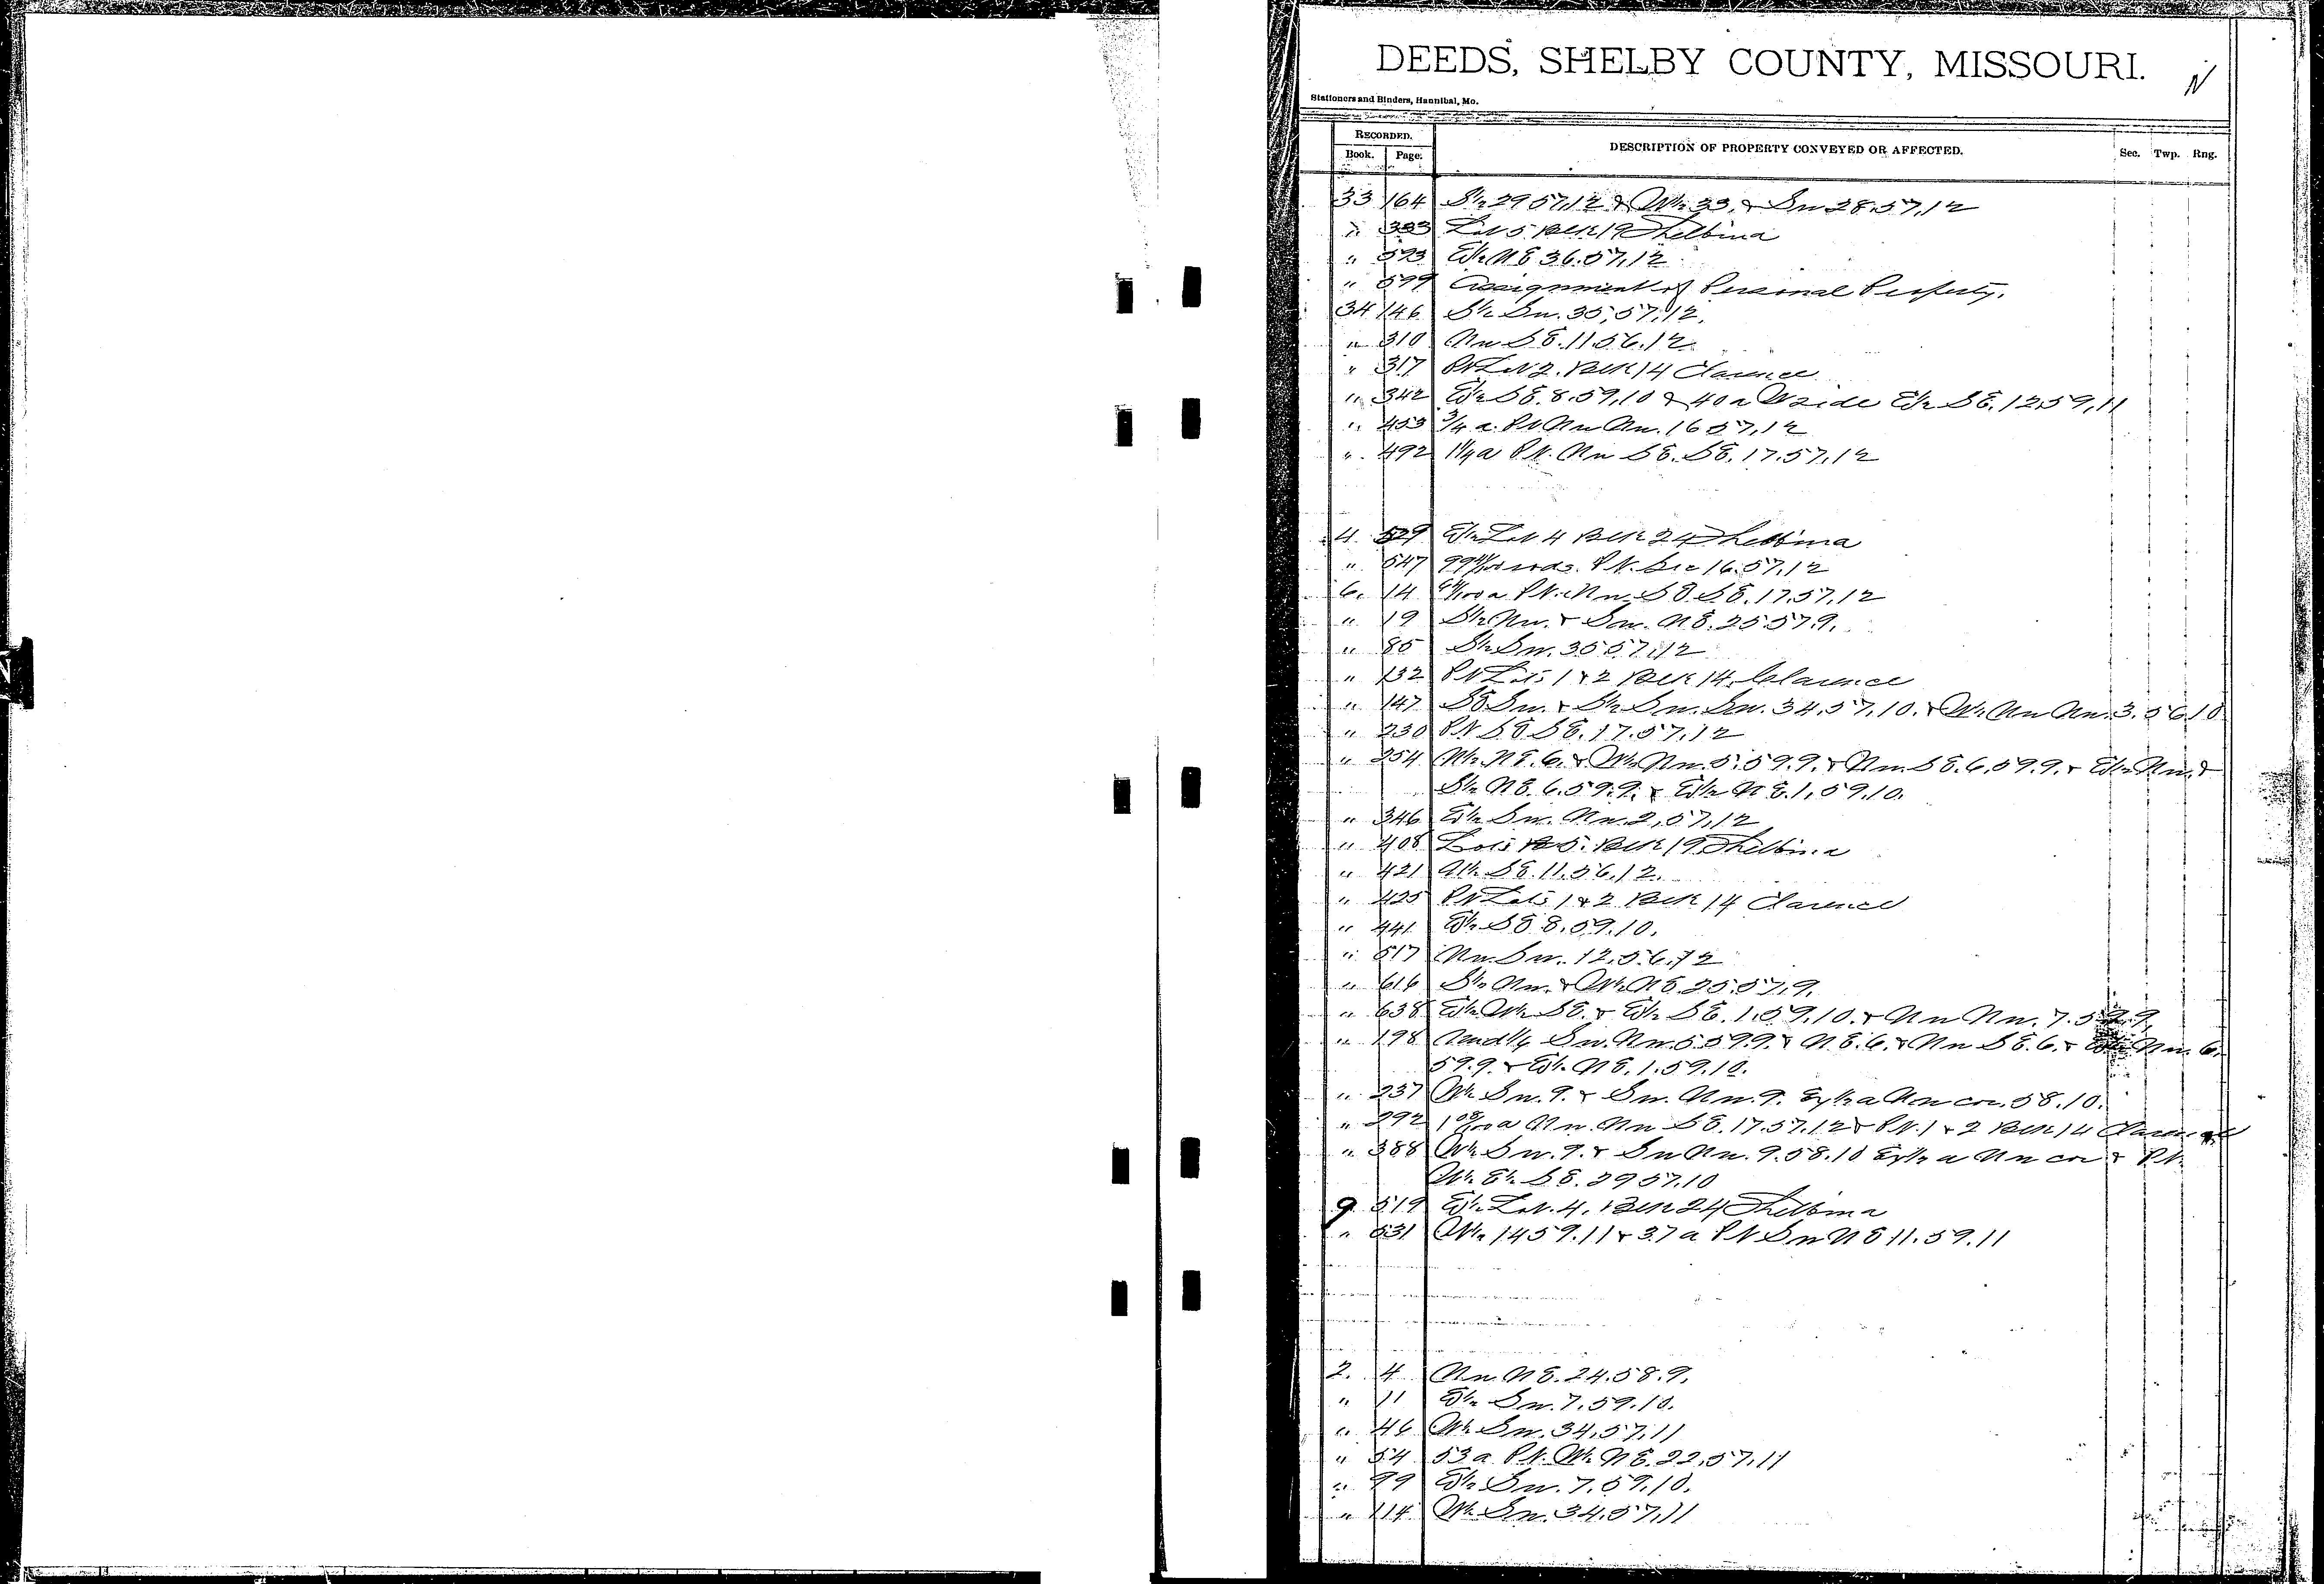 DEEDS, SHELBY COUNTY, MISSOURI. N
Stationers and Binders, Hannibal, Mo.
RECORDED.
Book. Page. DESCRIPTION OF PROPERTY CONVEYED OR AFFECTED. Sec. Twp. Rng.
33 164 S½ 29 57,12 & W½ 33, & Sw 28,57,12
" 383 Lot 5 Blk 19 Shelbina
" 593 E½ NE 36.57,12
" 599 Assignment of Personal Property.
34 146 S½ Sw. 35,57,12,
" 310 Nw SE. 11.56,12
" 317 Pt Lot 2. Blk 14 Clarence
" 342 E½ SE. 8.59,10 & 40 a W side E½ SE. 12 59,11
" 453 ¾ a. Pt Nw Nw. 16 57,12
" 492 1¼ a Pt. Nw SE. SE. 17.57,12
4 529 E½ Lot 4 Blk 24 Shelbina
" 547 Pt. Sec 16.57,12
6. 14 Pt. Nw. SE. SE. 17.57,12
" 19 S½ Nw. & Sw. NE. 25.57.9.
" 85 S½ Sw. 35 57,12
" 132 Pt Lots 1 & 2 Blk 14, Clarence
" 147 SE Sw. & S½ Sw. Sw. 34.57,10. & W½ Nw Nw. 3.56.10
" 230 Pt SE SE. 17.57,12
" 254 W½ NE. 6. & W½ Nw. 5.59.9. & Nw. SE. 6.59.9. & E½ Nw. &
S½ NE. 6.59.9. & E½ NE. 1.59.10.
" 346 E½ Sw. Nw. 2,57,12
" 408 Lots 5. Blk 19 Shelbina
" 421 N½ SE. 11.56.12.
" 425 Pt Lots 1 & 2 Blk 14 Clarence
" 441 E½ SE 8.59.10.
" 517 Nw. Sw. 12.56,12
" 616 S½ Nw. & W½ NE 25.57,9,
" 638 E½ W½ SE. & E½ SE. 1.59.10. & Nw Nw. 7.59.9,
" 198 Und 1/6 Sw. Nw. 5 59.9. & NE. 6. & Nw SE. 6. & E½ Nw. 6.
59.9. & E½ NE. 1.59.10.
" 237 W½ Sw. 9. & Sw. Nw. 9. Ex ½ a Nw cor. 58.10.
" 292 1 08/100 a Nw. Nw SE. 17.57.12 & Pt. 1 & 2 Blk 14 Clarence
" 388 W½ Sw. 9. & Sw Nw. 9.58.10 Ex ½ a Nw cor & Pt.
W½ E½ SE. 29 57.10
9 519 E½ Lot. 4, Blk 24 Shelbina
" 531 W½ 14 59.11 & 37 a Pt Sw NE 11.59.11
2. 4 Nw. NE. 24.58.9.
" 11 E½ Sw. 7.59.10.
" 46 W½ Sw. 34,57,11
" 54 53 a Pt. W½ NE. 22,57,11
" 99 E½ Sw. 7.59,10.
" 114 W½ Sw. 34,57,11